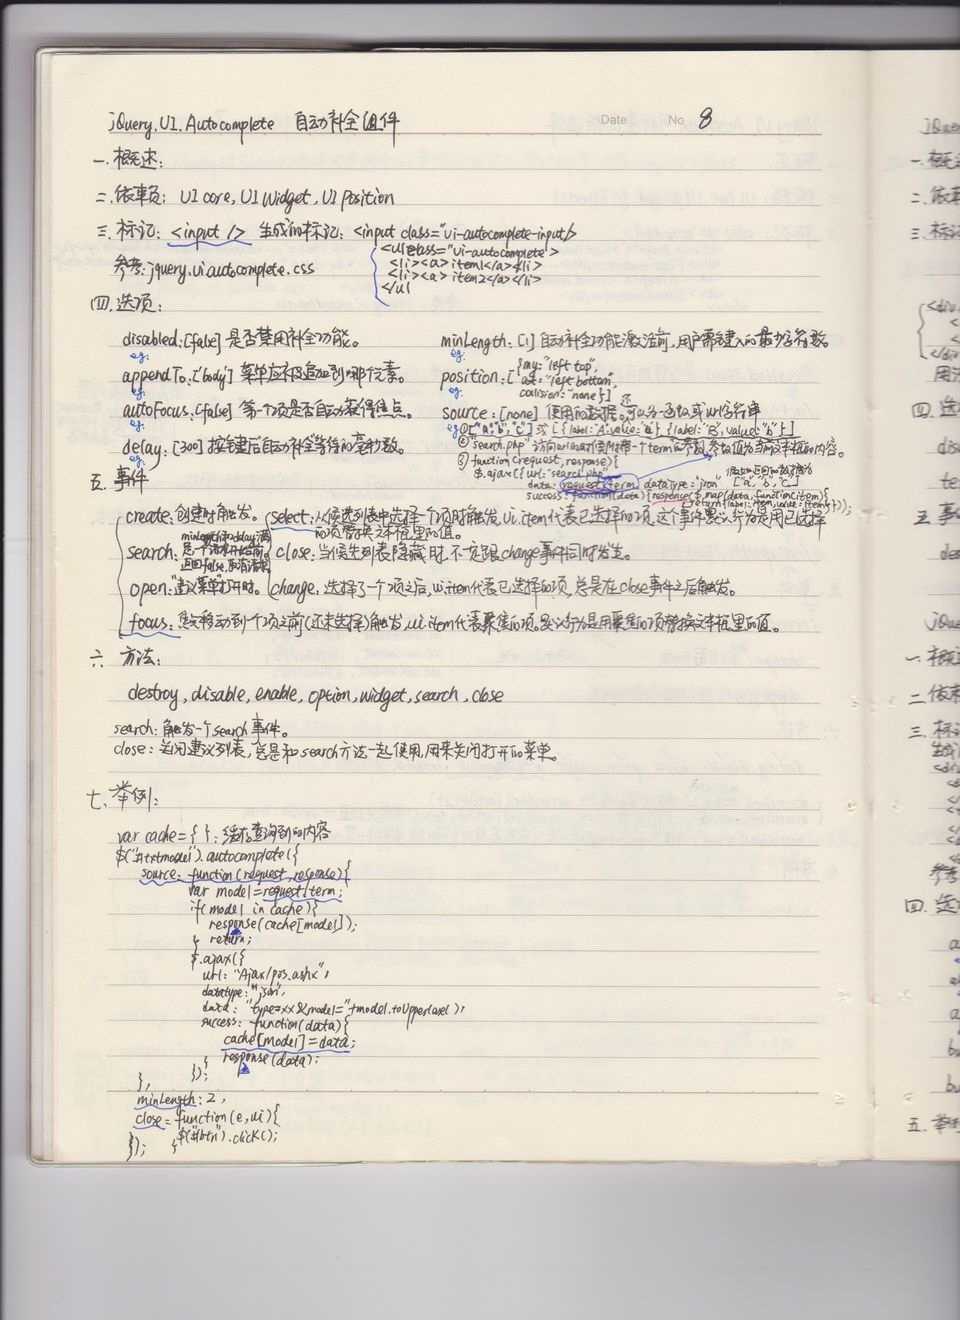 jQuery.UI.Autocomplete 自动补全组件
Date No 8
一.概述:
二.依赖: UI core, UI Widget, UI Position
三.标记: <input /> 生成的标记: <input class="ui-autocomplete-input/>
<ul class="ui-autocomplete">
<li><a>item1</a></li>
<li><a>item2</a></li>
</ul
参考: jquery.ui.autocomplete.css
四.选项:
disabled:[false] 是否禁用补全功能。
eg:
appendTo:['body'] 菜单应被追加到哪位素。
eg:
autoFocus:[false] 第一个项是否自动获得焦点。
eg:
delay:[300] 按键后自动补全等待的毫秒数。
eg:
minLength:[1] 自动补全功能激活前,用户需键入的最少字符数。
eg:
position:[{my:"left top",
at:"left bottom",
collision:"none"}]
eg:
source:[none] 使用的数据。可以为函数或url字符串
eg: ①["a","b","c"] 或 [{label:"A",value:"a"},{label:"B",value:"b"}]
②"search.php" 访问url时会附带一个term的参数,参数值为当前文本框的内容。
③function(request,response){
$.ajax({url:"search.php"
data: request.term, dataType:"json"
["a","b","c"]
success: function(data){response($.map(data,function(item){
return{label:item,value:item}}));
五.事件
create: 创建时触发。
search:
返回false,取消请求
open:"建议菜单"打开时。
focus: 焦点移动到一个项之前(还未选择)触发,ui.item代表聚焦的项。默认行为是用聚焦的项替换文本框里的值。
select: 从候选列表中选择一个项时触发,ui.item代表已选择的项,这个事件默认行为是用已选择
的项替换文本框里的值。
close: 当候先列表隐藏时,不一定跟change事件同时发生。
change: 选择了一个项之后,ui.item代表已选择的项,总是在close事件之后触发。
六 方法:
destroy, disable, enable, option, widget, search, close
search: 触发一个search事件。
close: 关闭建议列表,总是和search方法一起使用,用来关闭打开的菜单。
七.举例:
var cache={ }; 缓存查询到的内容
$("#txtmodel").autocomplete({
source: function(request,response){
var model=request.term;
if(model in cache){
response(cache[model]);
} return;
$.ajax({
url: "Ajax/pos.ashx",
datatype: "json",
data: "type=xx&model="+model.toUpperCase(),
success: function(data){
cache[model]=data;
} response(data);
}, });
minLength: 2,
close = function(e,ui){
$("#btn").click();
}); }